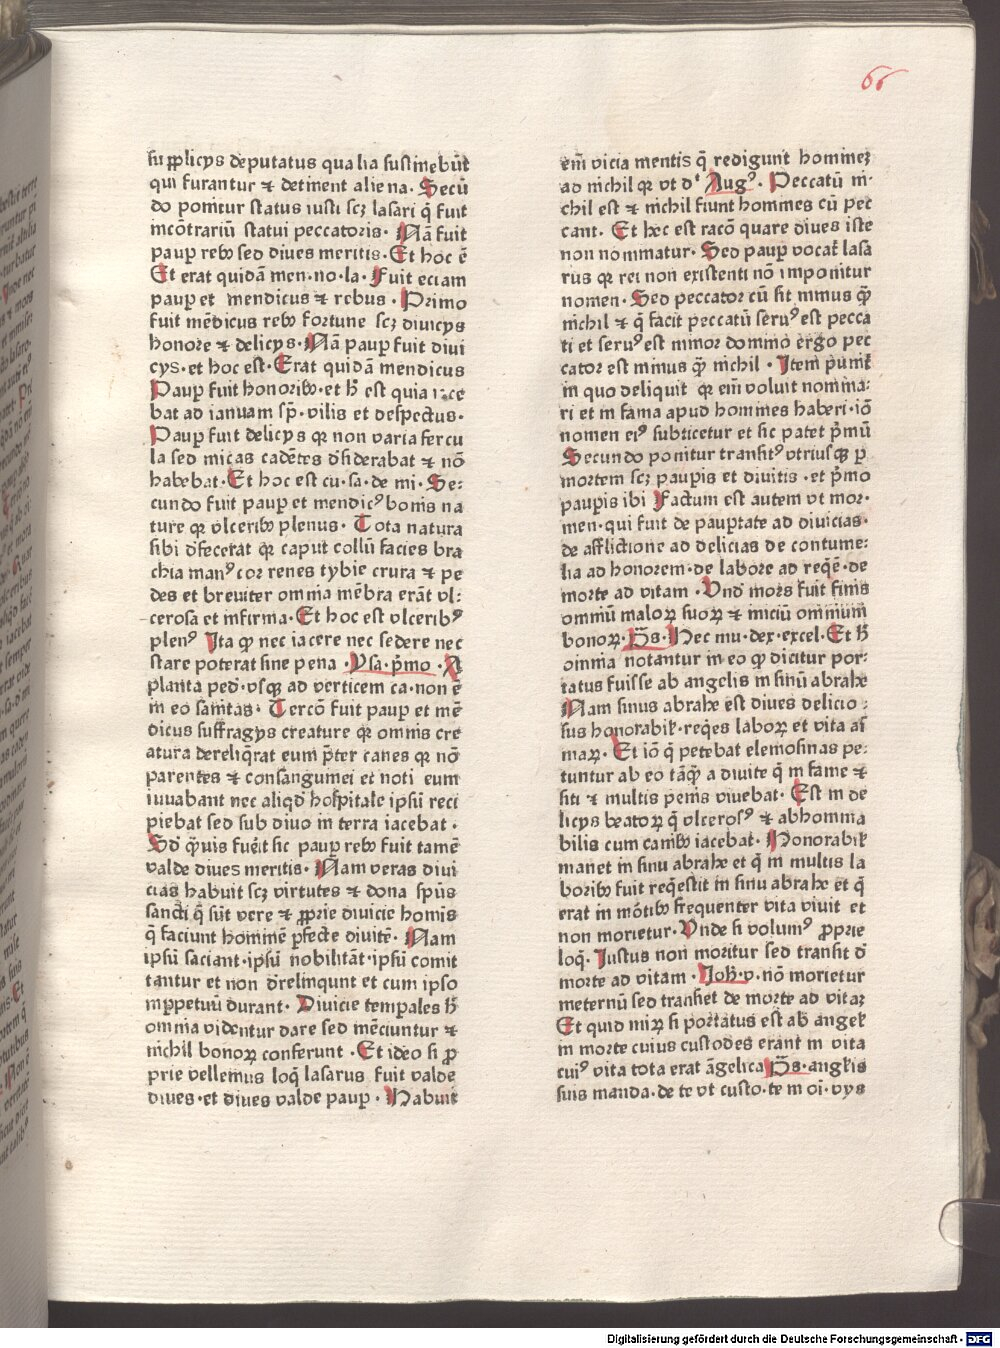 66
su ꝓplicys deputatus qua lia sustinebūt
qui furantur ⁊ detinent alie na. Secū
do ponitur status iusti scꝫ lasari q̄ fuit
incōtrariū statui peccatoris. Nā fuit
paup̄ rebꝰ sed diues meritis. Et hoc ē
Et erat quidā men. no. la. Fuit eciam
paup̄ et mendicus ⁊ rebus. Primo
fuit mēdicus rebꝰ fortune scꝫ diuicys
honore ⁊ delicys. Nā paup̄ fuit diui
cys. et hoc est. Erat quidā mendicus
Paup̄ fuit honoribꝰ. et h̄ est quia iace
bat ad ianuam sp̄. vilis et despectus.
Paup̄ fuit delicys qꝛ non varia fercu
la sed micas cadētes d̄siderabat ⁊ nō
habebat. Et hoc est cu. sa. de mi. Se⸗
cundo fuit paup̄ et mendicꝰ bonis na
ture qꝛ vlceribꝰ plenus. Tota natura
sibi d̄fecerat qꝛ caput collū facies bra
chia manꝰ cor renes tybie crura ⁊ pe
des et breuiter omnia mēbra erāt vl⸗
cerosa et infirma. Et hoc est vlceribꝰ
plenꝰ Ita ꝙ nec iacere nec sedere nec
stare poterat sine pena. Ysa. p̄mo. A
planta ped̄. vsqꝫ ad verticem ca. non ē
in eo sanitas. Tercō fuit paup̄ et mē
dicus suffragys creature qꝛ omnis cre
atura dereliq̄rat eum p̄ter canes qꝛ nō
parentes ⁊ consanguinei et noti eum
iuuabant nec aliqd̄ hospitale ipsū reci
piebat sed sub diuo in terra iacebat.
Sd̄ q̄uis fuēit sic paup̄ rebꝰ fuit tamē
valde diues meritis. Nam veras diui
cias habuit scꝫ virtutes ⁊ dona spūs
sancti q̄ sūt vere ⁊ ꝓprie diuicie homīs
q̄ faciunt hominē ꝑfecte diuitē. Nam
ipsū saciant. ipsū nobilitāt. ipsū comit
tantur et non d̄relinqunt et cum ipso
inꝑpetuū durant. Diuicie temꝑales h̄
omnia vidēntur dare sed mēciuntur ⁊
nichil bonoꝝ conferunt. Et ideo si ꝓ
prie vellemus loq̄ lasarus fuit valde
diues. et diues valde paup̄. Habuit
em̄ vicia mentis q̄ redigunt hominez
ad nichil qꝛ vt dᵗ Augꝰ. Peccatū ni⸗
chil est ⁊ nichil fiunt homines cū pec
cant. Et hec est racō quare diues iste
non nominatur. Sed paup̄ vocat̄ lasa
rus qꝛ rei non existenti nō imponitur
nomen. Sed peccator cū sit minus q̄
nichil ⁊ q̄ facit peccatū seruꝰ est pecca
ti et seruꝰ est minor domino ergo pec
cator est minus q̄ nichil. Item punit̄
in quo deliquit qꝛ em̄ voluit nomina⸗
ri et in fama apud homines haberi. iō
nomen eiꝰ subticetur et sic patet p̄mū
Secundo ponitur transitꝰ vtriusqꝫ ꝑ
mortem scꝫ paupis et diuitis. et p̄mo
paupis ibi Factum est autem vt mor⸗
men. qui fuit de pauptate ad diuicias.
de afflictione ad delicias de contume⸗
lia ad honorem. de labore ad reqē. de
morte ad vitam. Vnd̄ mors fuit finis
omniū maloꝝ suoꝝ ⁊ iniciū omnium
bonoꝝ. p̄s. Hec mu. dex. excel. Et h̄
omnia notantur in eo ꝙ dicitur por⸗
tatus fuisse ab angelis in sinū abrahe
Nam sinus abrahe est diues delicio⸗
sus honorabil̄. reqēs laboꝝ et vita ai
maꝝ. Et iō q̄ petebat elemosinas pe⸗
tuntur ab eo tāq̄ a diuite q̄ in fame ⁊
siti ⁊ multis penis viuebat. Est in de
licys beatoꝝ q̄ vlcerosꝰ ⁊ abhomina
bilis cum canibꝰ iacebat. Honorabil̄
manet in sinu abrahe et q̄ in multis la
boribꝰ fuit reqēstit in sinu abrahe et q̄
erat in mōtibꝰ frequenter vita viuit et
non morietur. Vnde si volumꝰ ꝓprie
loq̄. Iustus non moritur sed transit d̄
morte ad vitam. Joh̄. v. nō morietur
meternū sed transiet de morte ad vitaꝫ
Et quid miꝝ si portatus est ab angel̄
in morte cuius custodes erant in vita
cuiꝰ vita tota erat āgelica p̄s. anglis
suis manda. de te vt custo. te in oī. vys
Digitalisierung gefördert durch die Deutsche Forschungsgemeinschaft - DFG